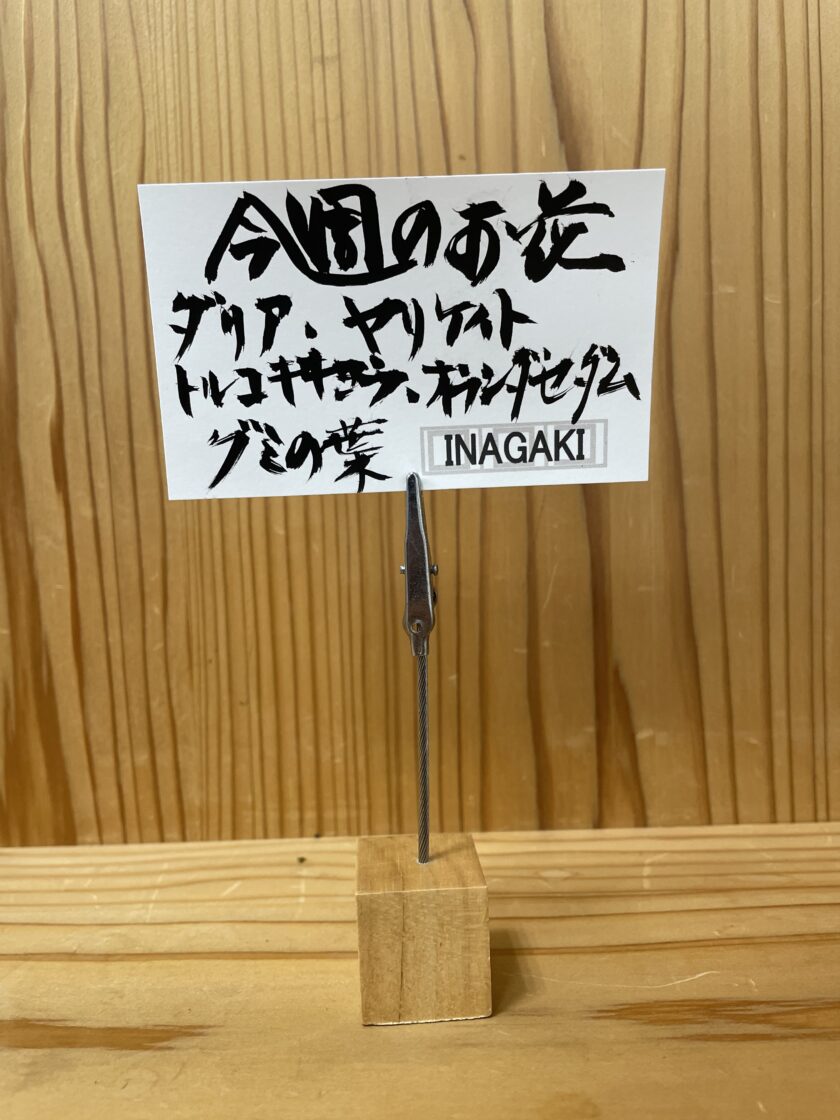 今週のお花
ダリア、ヤリケイト
トルコキキョウ、オランダセダム
グミの葉
INAGAKI